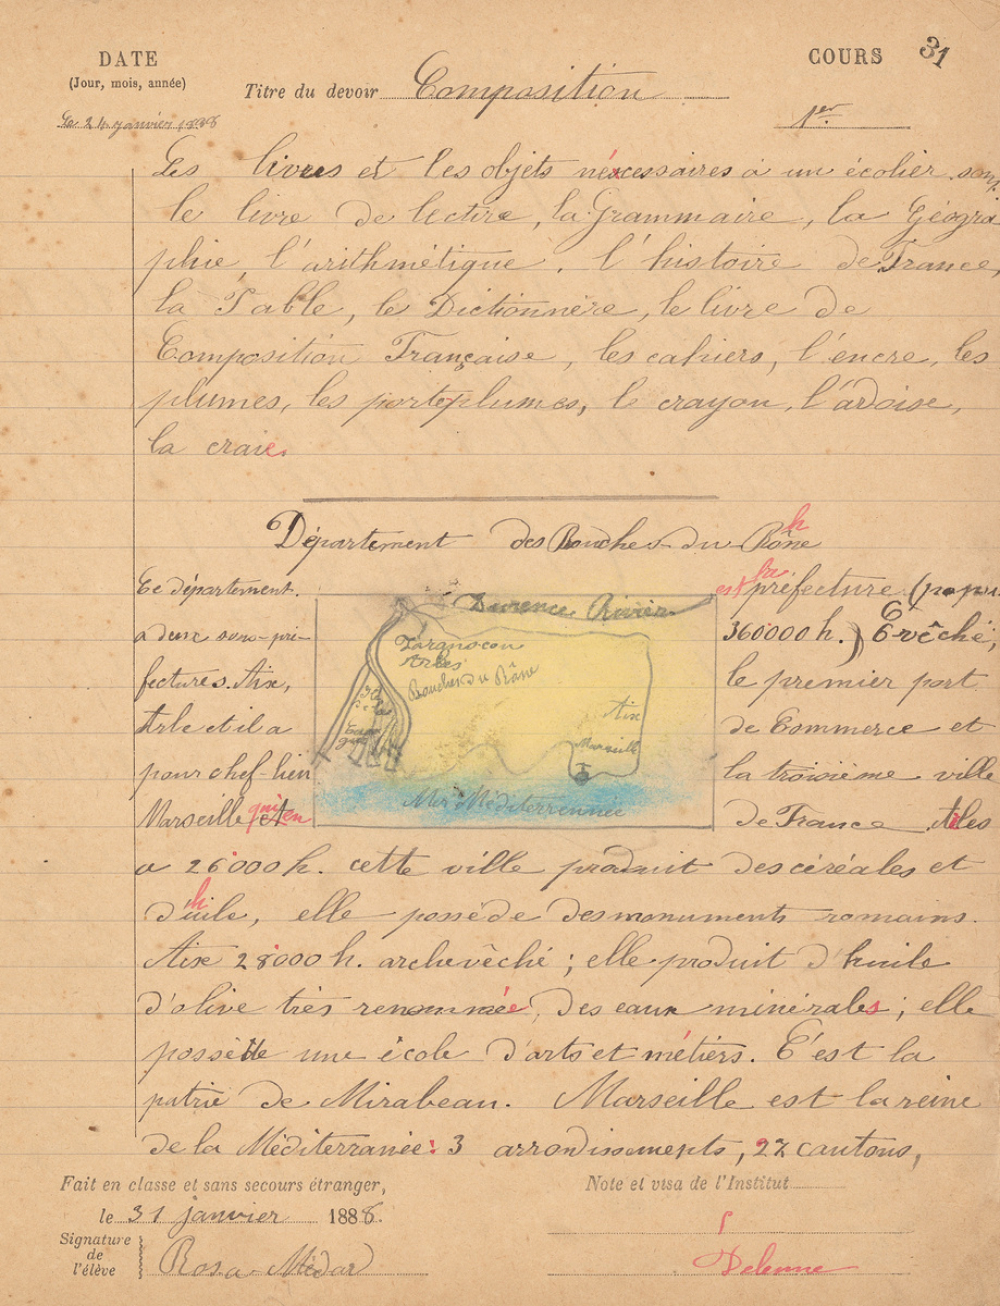 DATE
(Jour, mois, année)
Le 24 janvier 1888
Titre du devoir Composition
COURS 31
1er
Les livres et les objets nécessaires à un écolier sont
le livre de lectire, la Grammaire, la Géogra
phie, l'arithmétique, l'histoire de France,
la Table, le Dictionnère, le livre de
Composition Française, les cahiers, l'encre, les
plumes, les porteplumes, le crayon, l'ardoise,
la craie.
Département des Bouches du Rhône
Ce département.
a deux sous-pré-
fectures. Aix,
Arle et il a
pour chef-lieu
Marseille qui en
Durence Rivièr
Tarascon
Arles
Bouches du Rône
Aix
Marseille
Mer Méditerrennée
est la préfecture (popu.
360000 h.) Evêché;
le premier port
de Commerce et
la troisième ville
de France Arles
a 26000 h. cette ville produit des céréales et
d'huile, elle possède des monuments romains.
Aix 28000 h. archevêché; elle produit d'huile
d'olive très renommée, des eaux minérales; elle
possède une école d'arts et métiers. C'est la
patrie de Mirabeau. Marseille est la reine
de la Méditerranée: 3 arrondissements, 27 cantons,
Fait en classe et sans secours étranger,
le 31 janvier 1888.
Signature
de
l'élève
Rosa Médar
Note et visa de l'Institut
Delenne